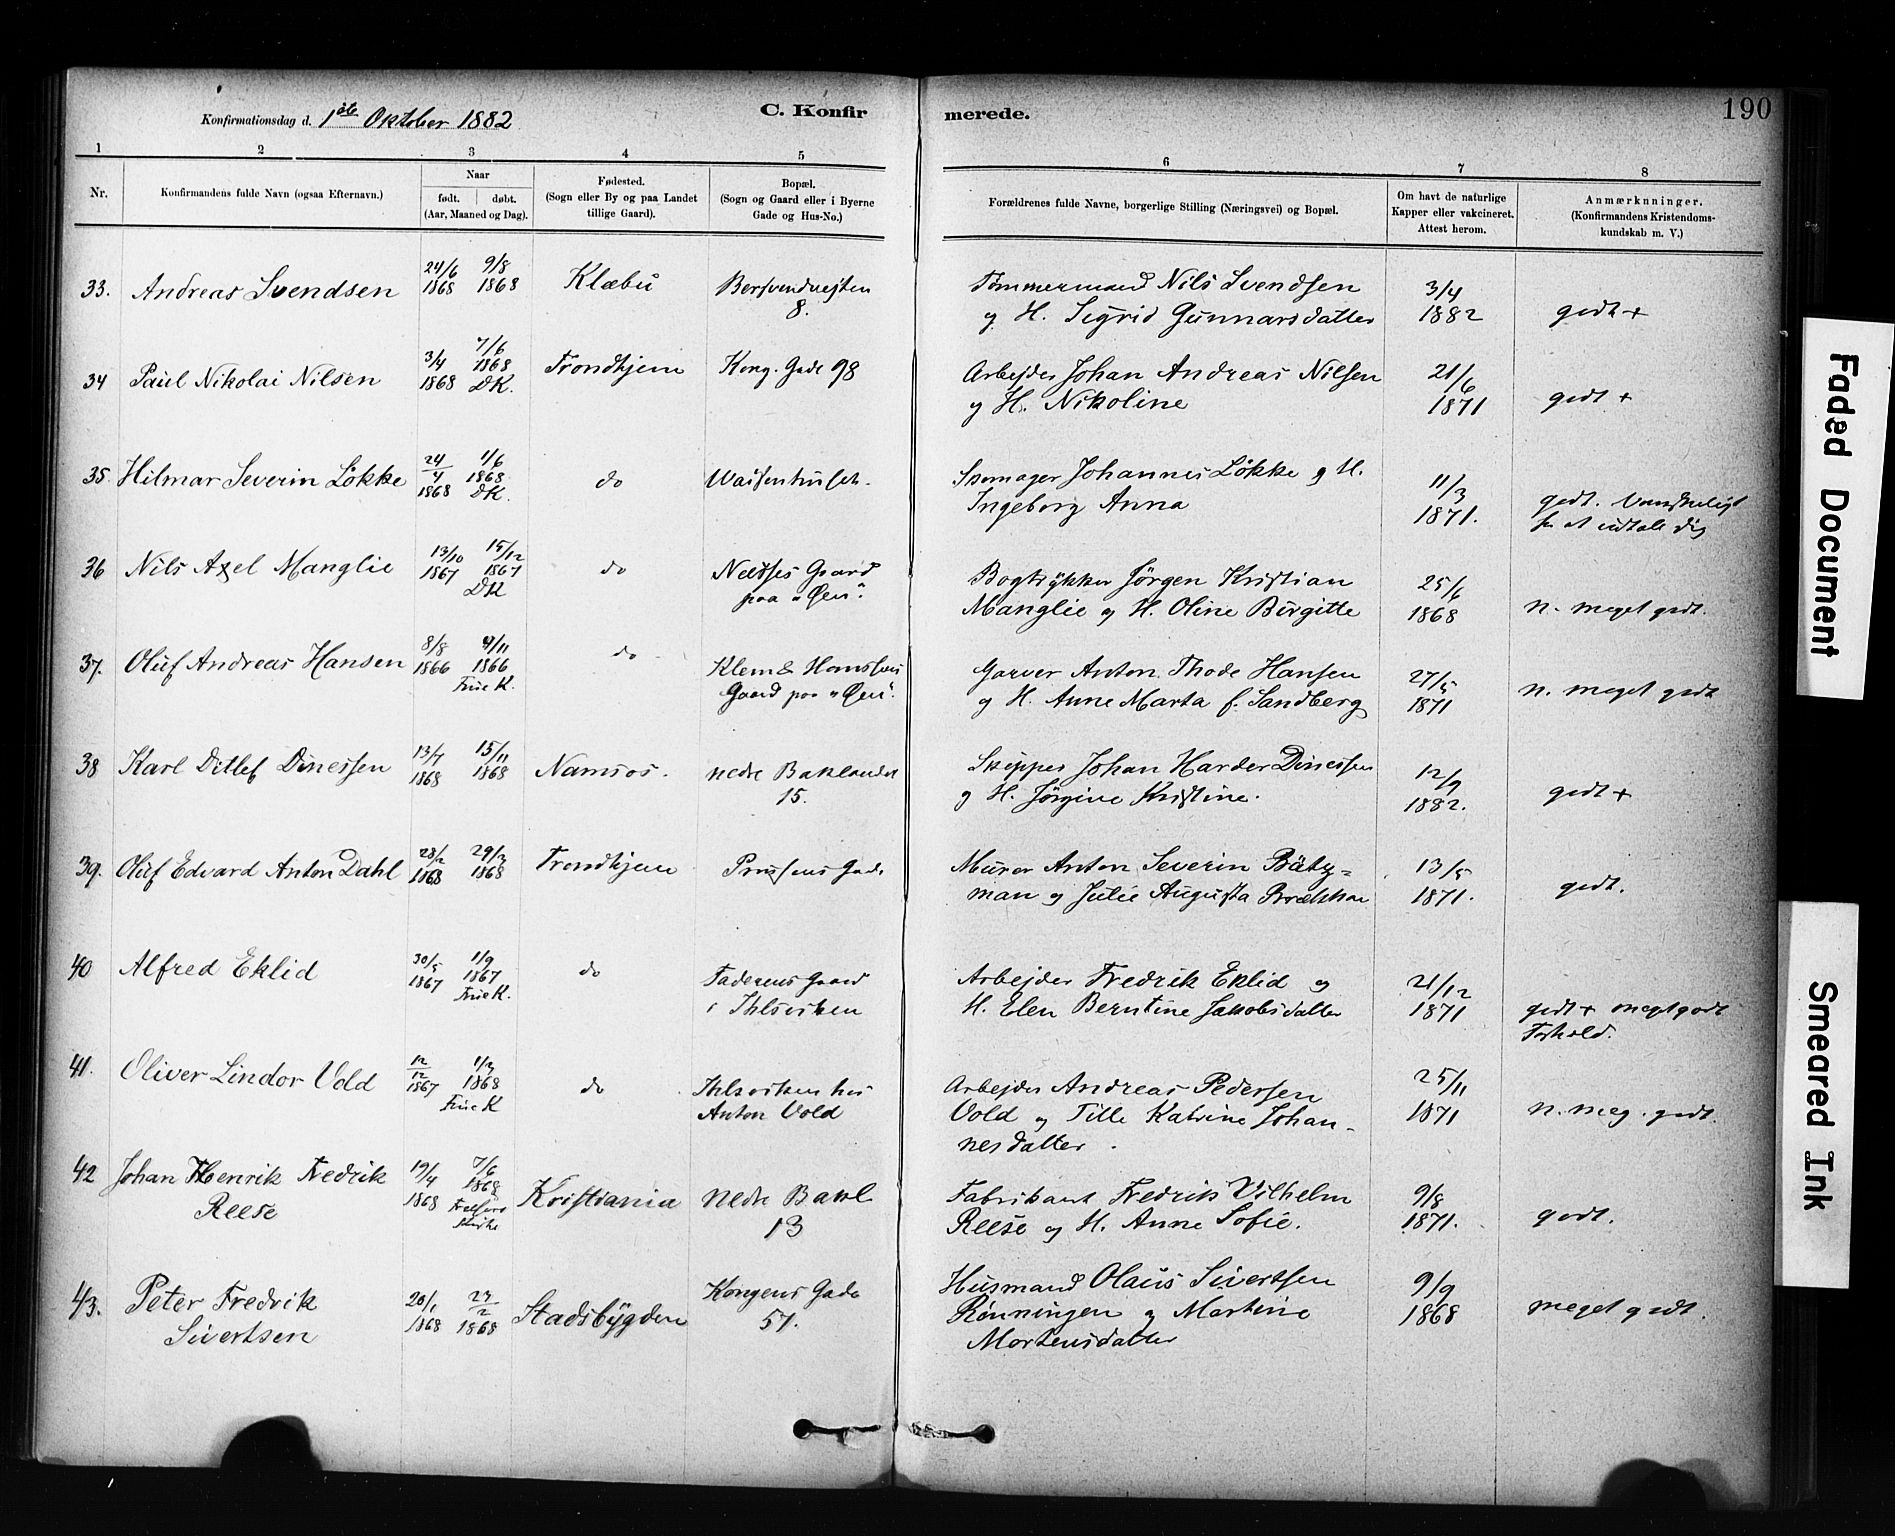 190
Konfirmationsdag d. 1ste Oktober 1882
C. Konfirmerede.
1 2 3 4 5 6 7 8
Nr.
Konfirmandens fulde Navn (ogsaa Efternavn.)
Naar
født. døbt.
(Aar, Maaned og Dag).
Fødested.
(Sogn eller By og paa Landet
tillige Gaard).
Bopæl.
(Sogn og Gaard eller i Byerne
Gade og Hus-No.)
Forældrenes fulde Navne, borgerlige Stilling (Næringsvei) og Bopæl.
Om havt de naturlige
Kapper eller vakcineret.
Attest herom.
Anmærkninger.
(Konfirmandens Kristendoms-
kundskab m. V.)
33. Andreas Svendsen 24/6 1868 9/8 1868 Klæbu Bersvendvejten 8.
Tømmermand Nils Svendsen
og H. Sigrid Gunnarsdatter
3/4 1882 godt +
34 Paul Nikolai Nilsen 3/4 1868 7/6 1868 DK. Trondhjem Kong. Gade 98
Arbejder Johan Andreas Nilsen
og H. Nikoline
21/6 1871 godt +
35. Hilmar Severin Løkke 24/4 1868 1/6 1868 DK. do Waisenhuset.
Skomager Johannes Løkke og H.
Ingeborg Anna
11/3 1871. godt. Vanskeligt
for at udtale sig
36 Nils Axel Manglie 13/10 1867 15/12 1867 DK do Gaard
paa "Øen".
Bogtrykker Jørgen Kristian
Manglie og H. Oline Birgitte
25/6 1868 n. meget godt.
37. Oluf Andreas Hansen 8/8 1866 4/11 1866 Frue K. do Klem &
Gaard paa "Øen".
Garver Anton Thode Hansen
og H. Anne Marta f. Sandberg
27/5 1871 n. meget godt
38 Karl Ditlef Dinessen 13/7 1868 15/11 1868 Namsos. nedre Baklandet
15.
Skipper Johan Harder Dinessen
og H. Jørgine Kristine.
12/9 1882. godt +
39. Oluf Edvard Anton Dahl 28/2 1868 29/3 1868 Trondhjem Gade
Murer Anton Severin Bätz=
man og Julie Augusta
13/5 1871. godt.
40 Alfred Eklid 30/5 1867 1/9 1867 Frue K. do Gaard
i Ihlsviken
Arbejder Fredrik Eklid og
H. Elen Berntine Jakobsdatter
21/12 1871 godt + meget godt
Forhold.
41. Oliver Lindor Vold 12/12 1867 1/3 1868 Frue K do Ihlsviken hos
Anton Vold
Arbejder Andreas Pedersen
Vold og Tille Katrine Johan-
nesdatter.
25/11 1871 n. meg. godt.
42 Johan Henrik Fredrik
Reese 19/4 1868 7/6 1868 Frelsers Kirke Kristiania nedre Bakl
13
Fabrikant Fredrik Vilhelm
Reese og H. Anne Sofie.
9/8 1871. godt.
43. Peter Fredrik
Sivertsen 20/1 1868 23/2 1868 Stadsbygden Kongens Gade
51.
Husmand Olaus Sivertsen
Rønningen og Martine
Mortensdatter
9/9 1868 meget godt.
Faded Document
Smeared Ink